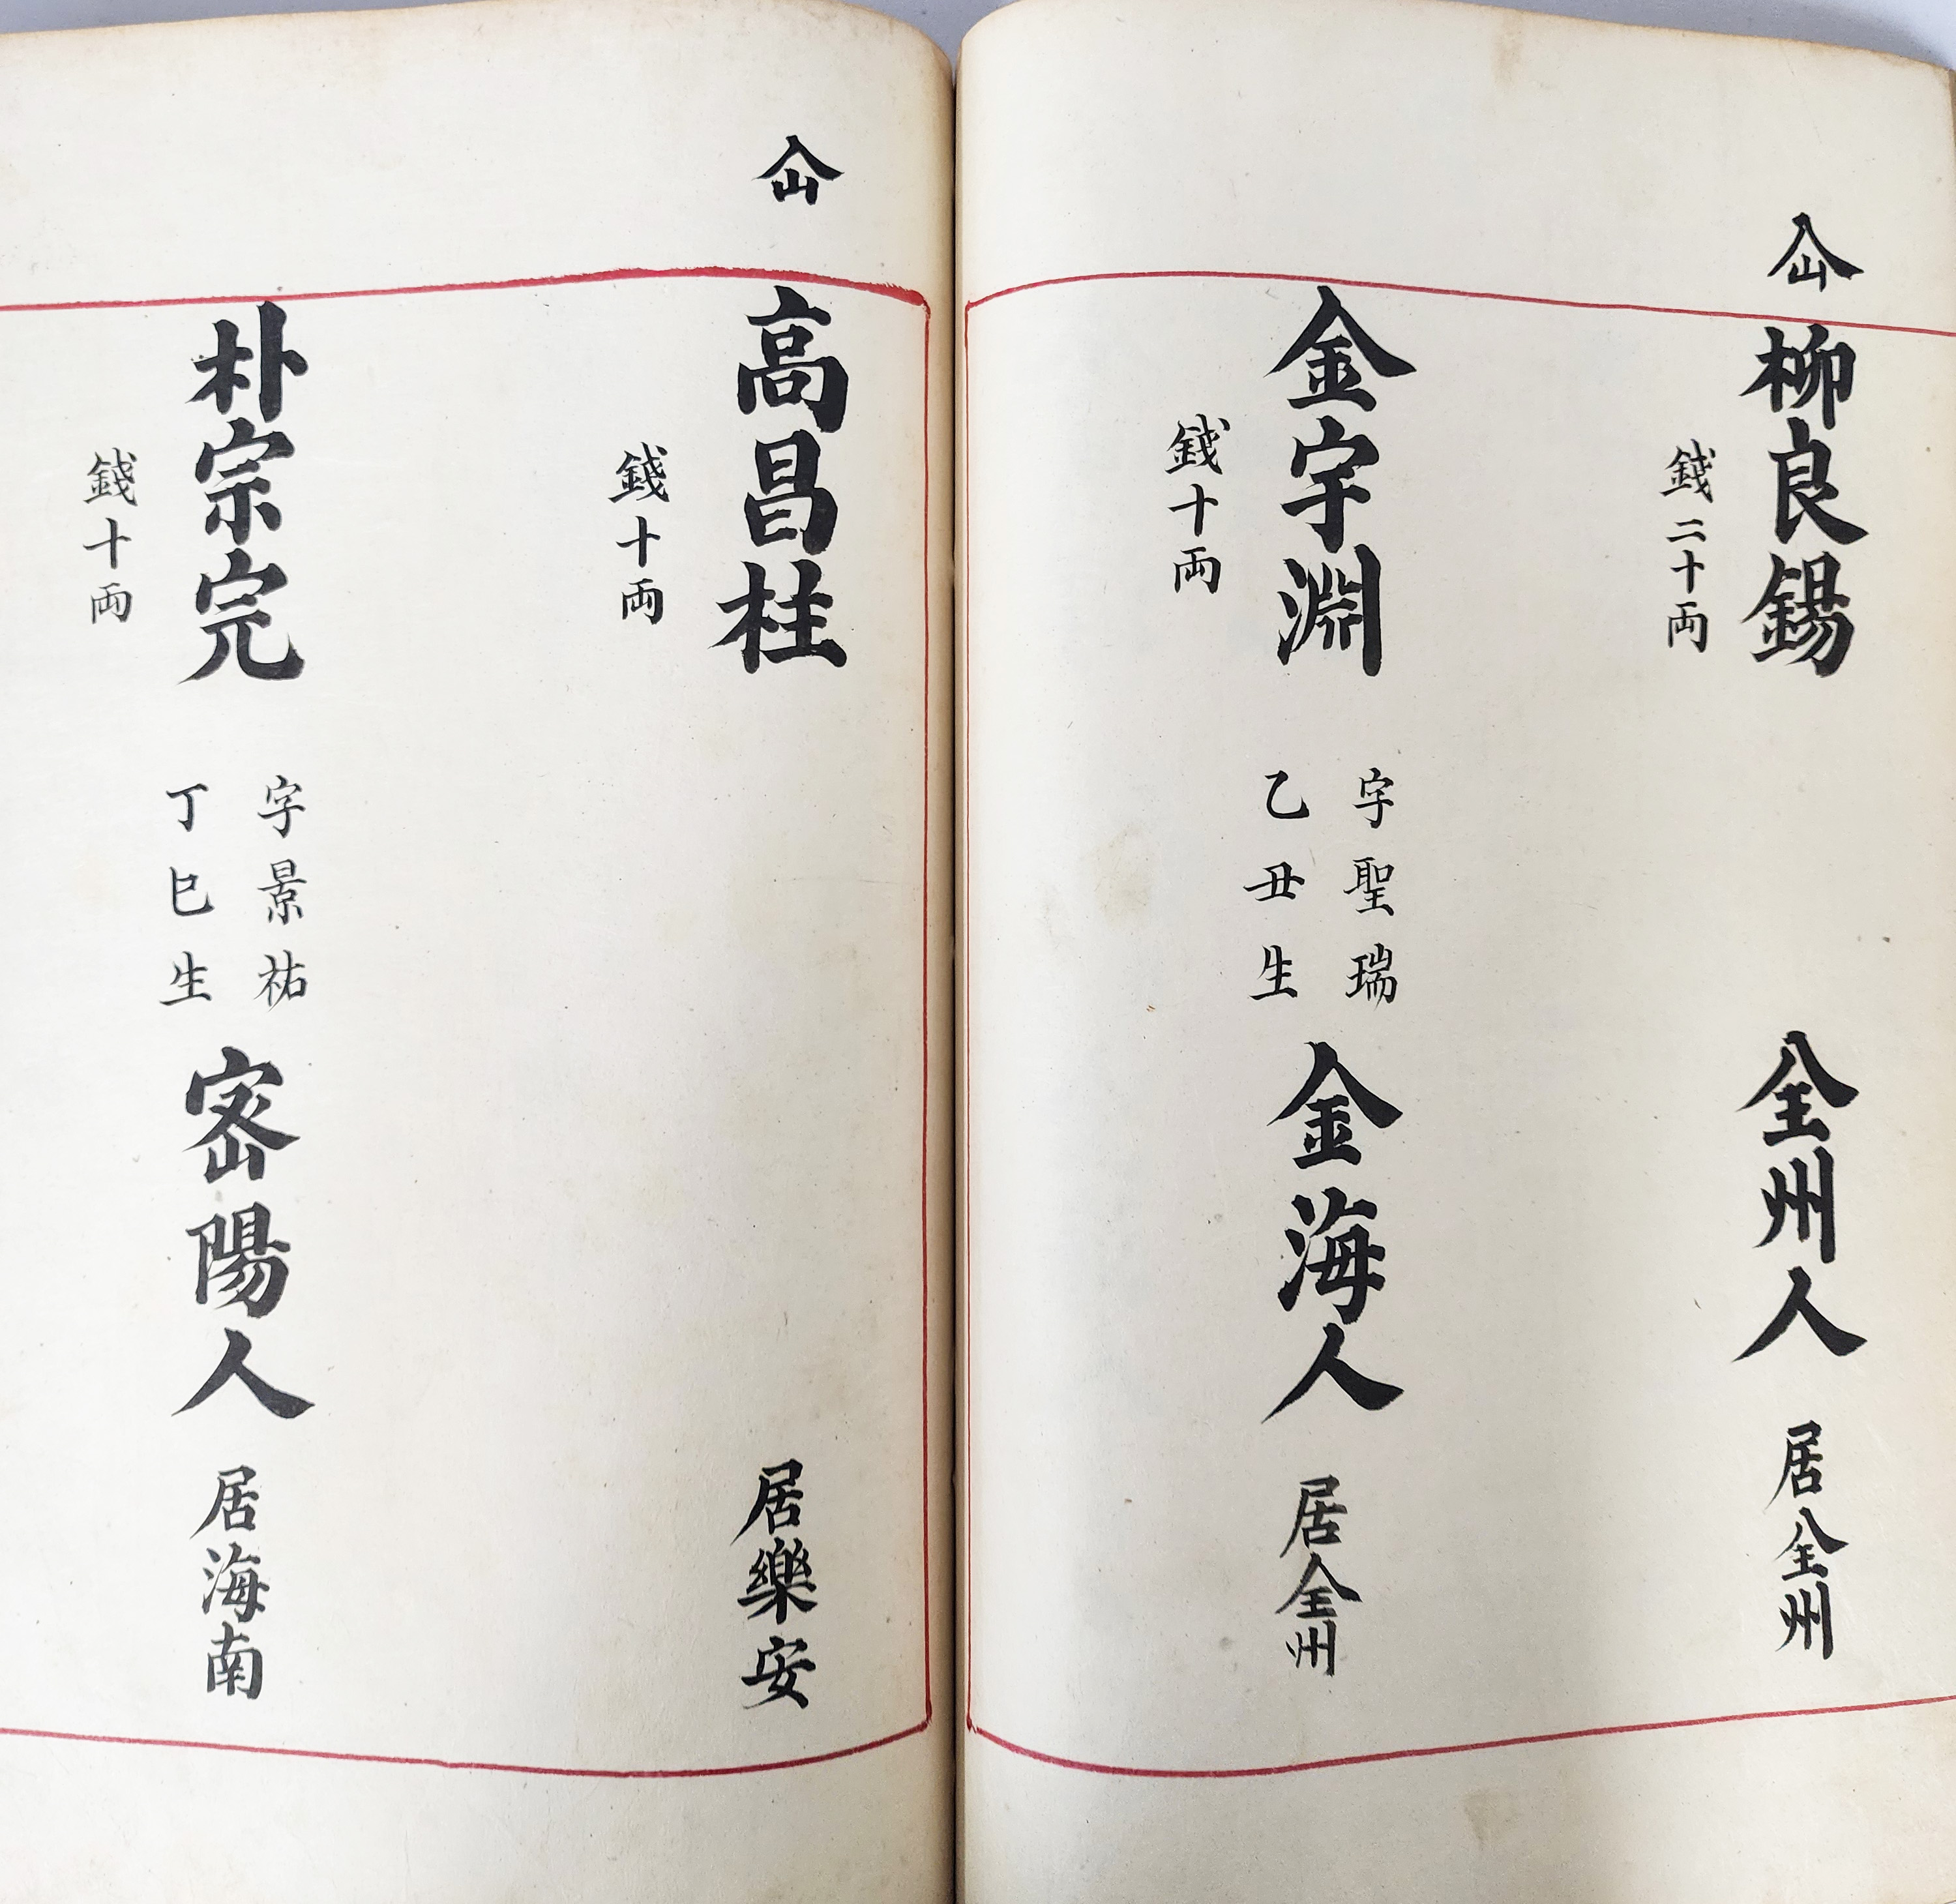 仚
柳良錫 全州人 居全州
錢二十両
金宇淵 字聖瑞 乙丑生 金海人 居全州
錢十両
仚
高昌柱 居樂安
錢十両
朴宗完 字景祐 丁巳生 密陽人 居海南
錢十両